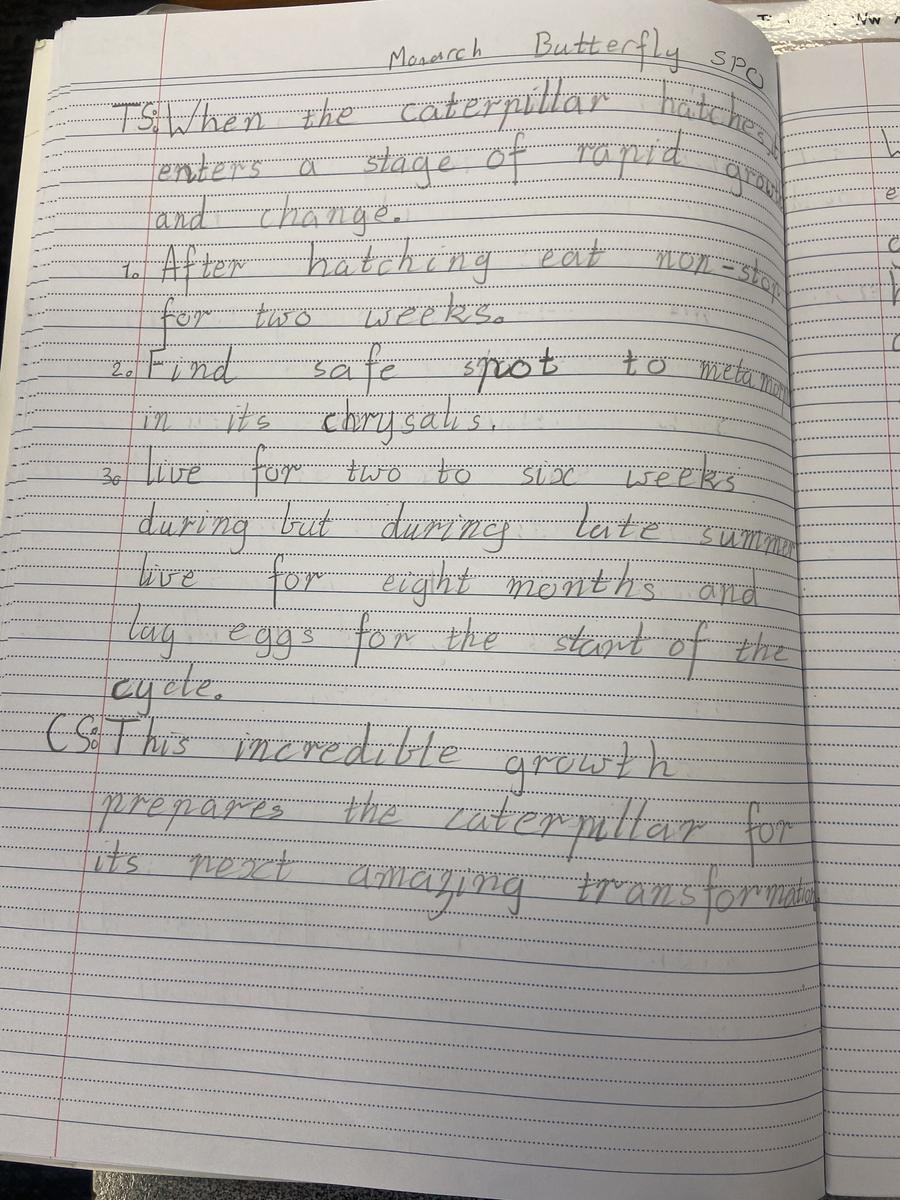 Monarch Butterfly SPO
TS: When the caterpillar hatches, it
enters a stage of rapid growth
and change.
1. After hatching eat non-stop
for two weeks.
2. Find safe spot to metamorph
in its chrysalis.
3. live for two to six weeks
during but during late summer
live for eight months and
lay eggs for the start of the
cycle.
CS: This incredible growth
prepares the caterpillar for
its next amazing transformation